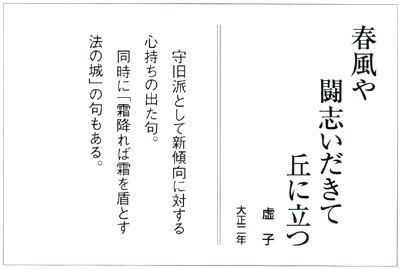 春風や
闘志いだきて
丘に立つ
虚子
大正二年
守旧派として新傾向に対する
心持ちの出た句。
同時に「霜降れば霜を盾とす
法の城」の句もある。